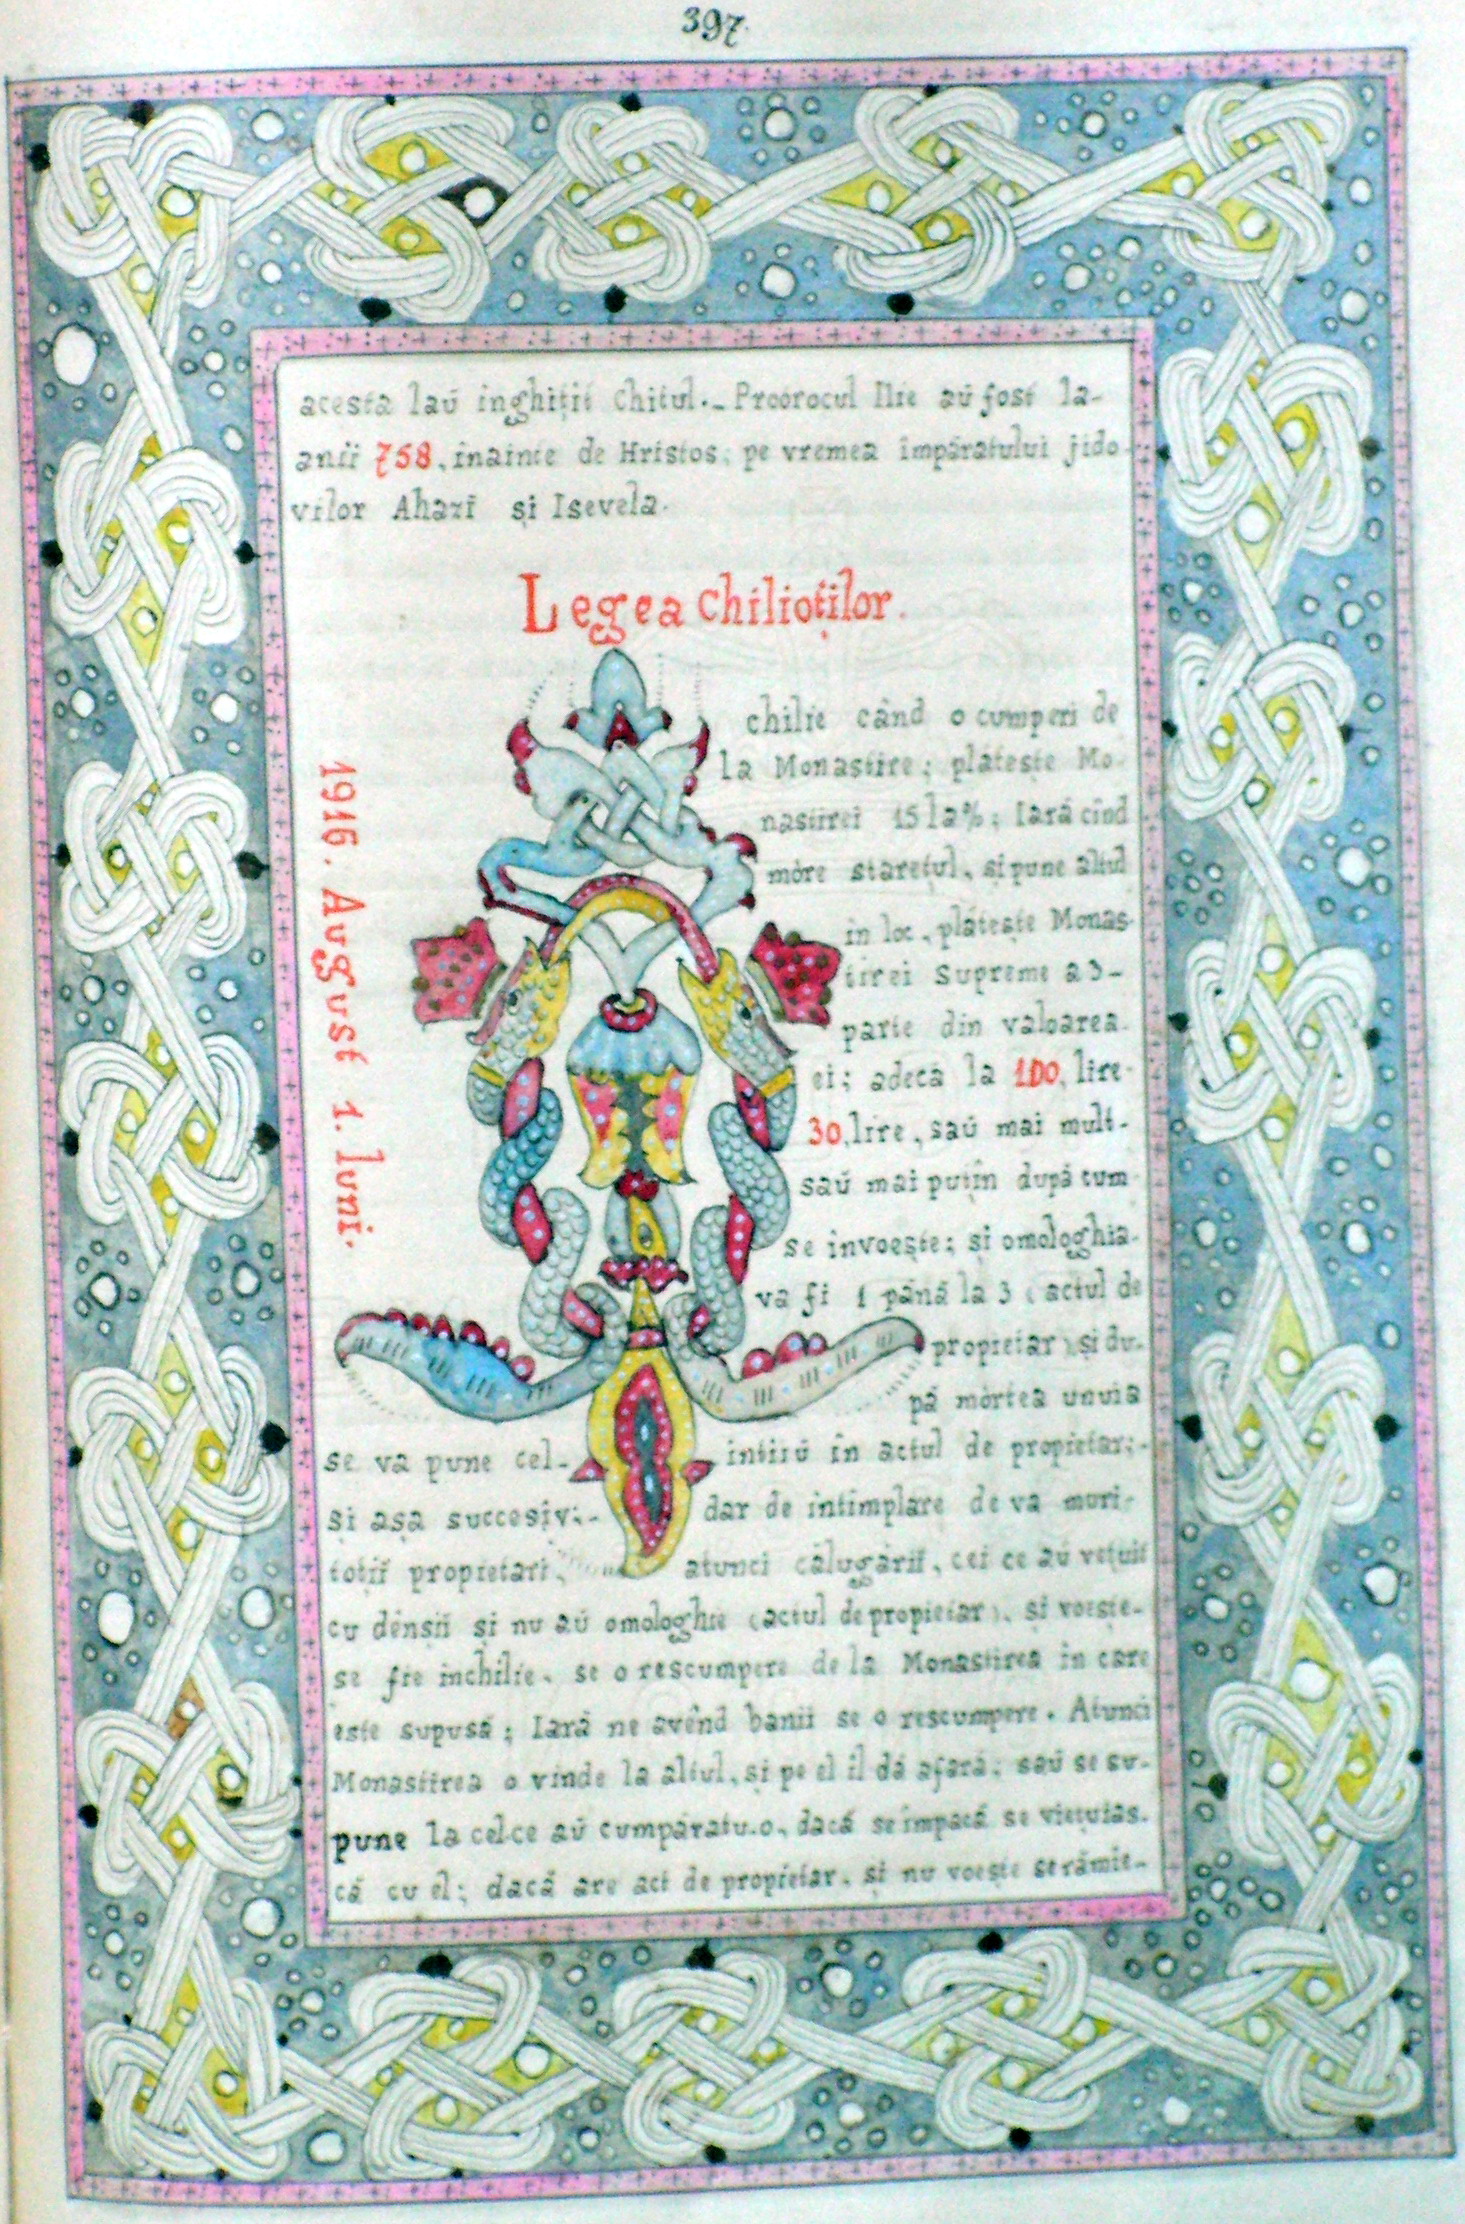 397.
acesta laŭ inghițit Chitul._ Proorocul Ilie aŭ fost la-
anii 758, înainte de Hristos; pe vremea împăratului jido-
vilor Ahazĭ și Isevela.
Legea Chilioților.
1916. August 1. luni.
chilie când o cumperi de
la Monastire; plătește Mo-
nastirei 15 la %; Iară cînd
móre starețul, și pune altul
in loc, plătește Monas-
tirei Supreme a 3-
parte din valoarea-
ei; adecă la 100, lire-
30, lire, saŭ mai mult-
saŭ mai puțin după cum
se invoește; și omologhia-
va fi 1 până la 3 (actul de
proprietar) și du-
pă mórtea unuia
se va pune cel- intiiŭ în actul de propietar;-
Și așa succesiv;- dar de intimplare de va muri-
toțiĭ propietari, atunci călugăriĭ, cei ce aŭ vețuit
cu dênșii și nu aŭ omologhie (actul de propietar), și voește-
se fie inchilie, se o rescumpere de la Monastirea in care
este supusă; Iară ne avênd banii se o rescumpere. Atunci
Monastirea o vinde la altul, și pe el îl dă afară; saŭ se su-
pune la cel-ce aŭ cumpăratu-o, dacă se împacă se viețuias-
că cu el; dacă are act de propietar, și nu voește serămie-